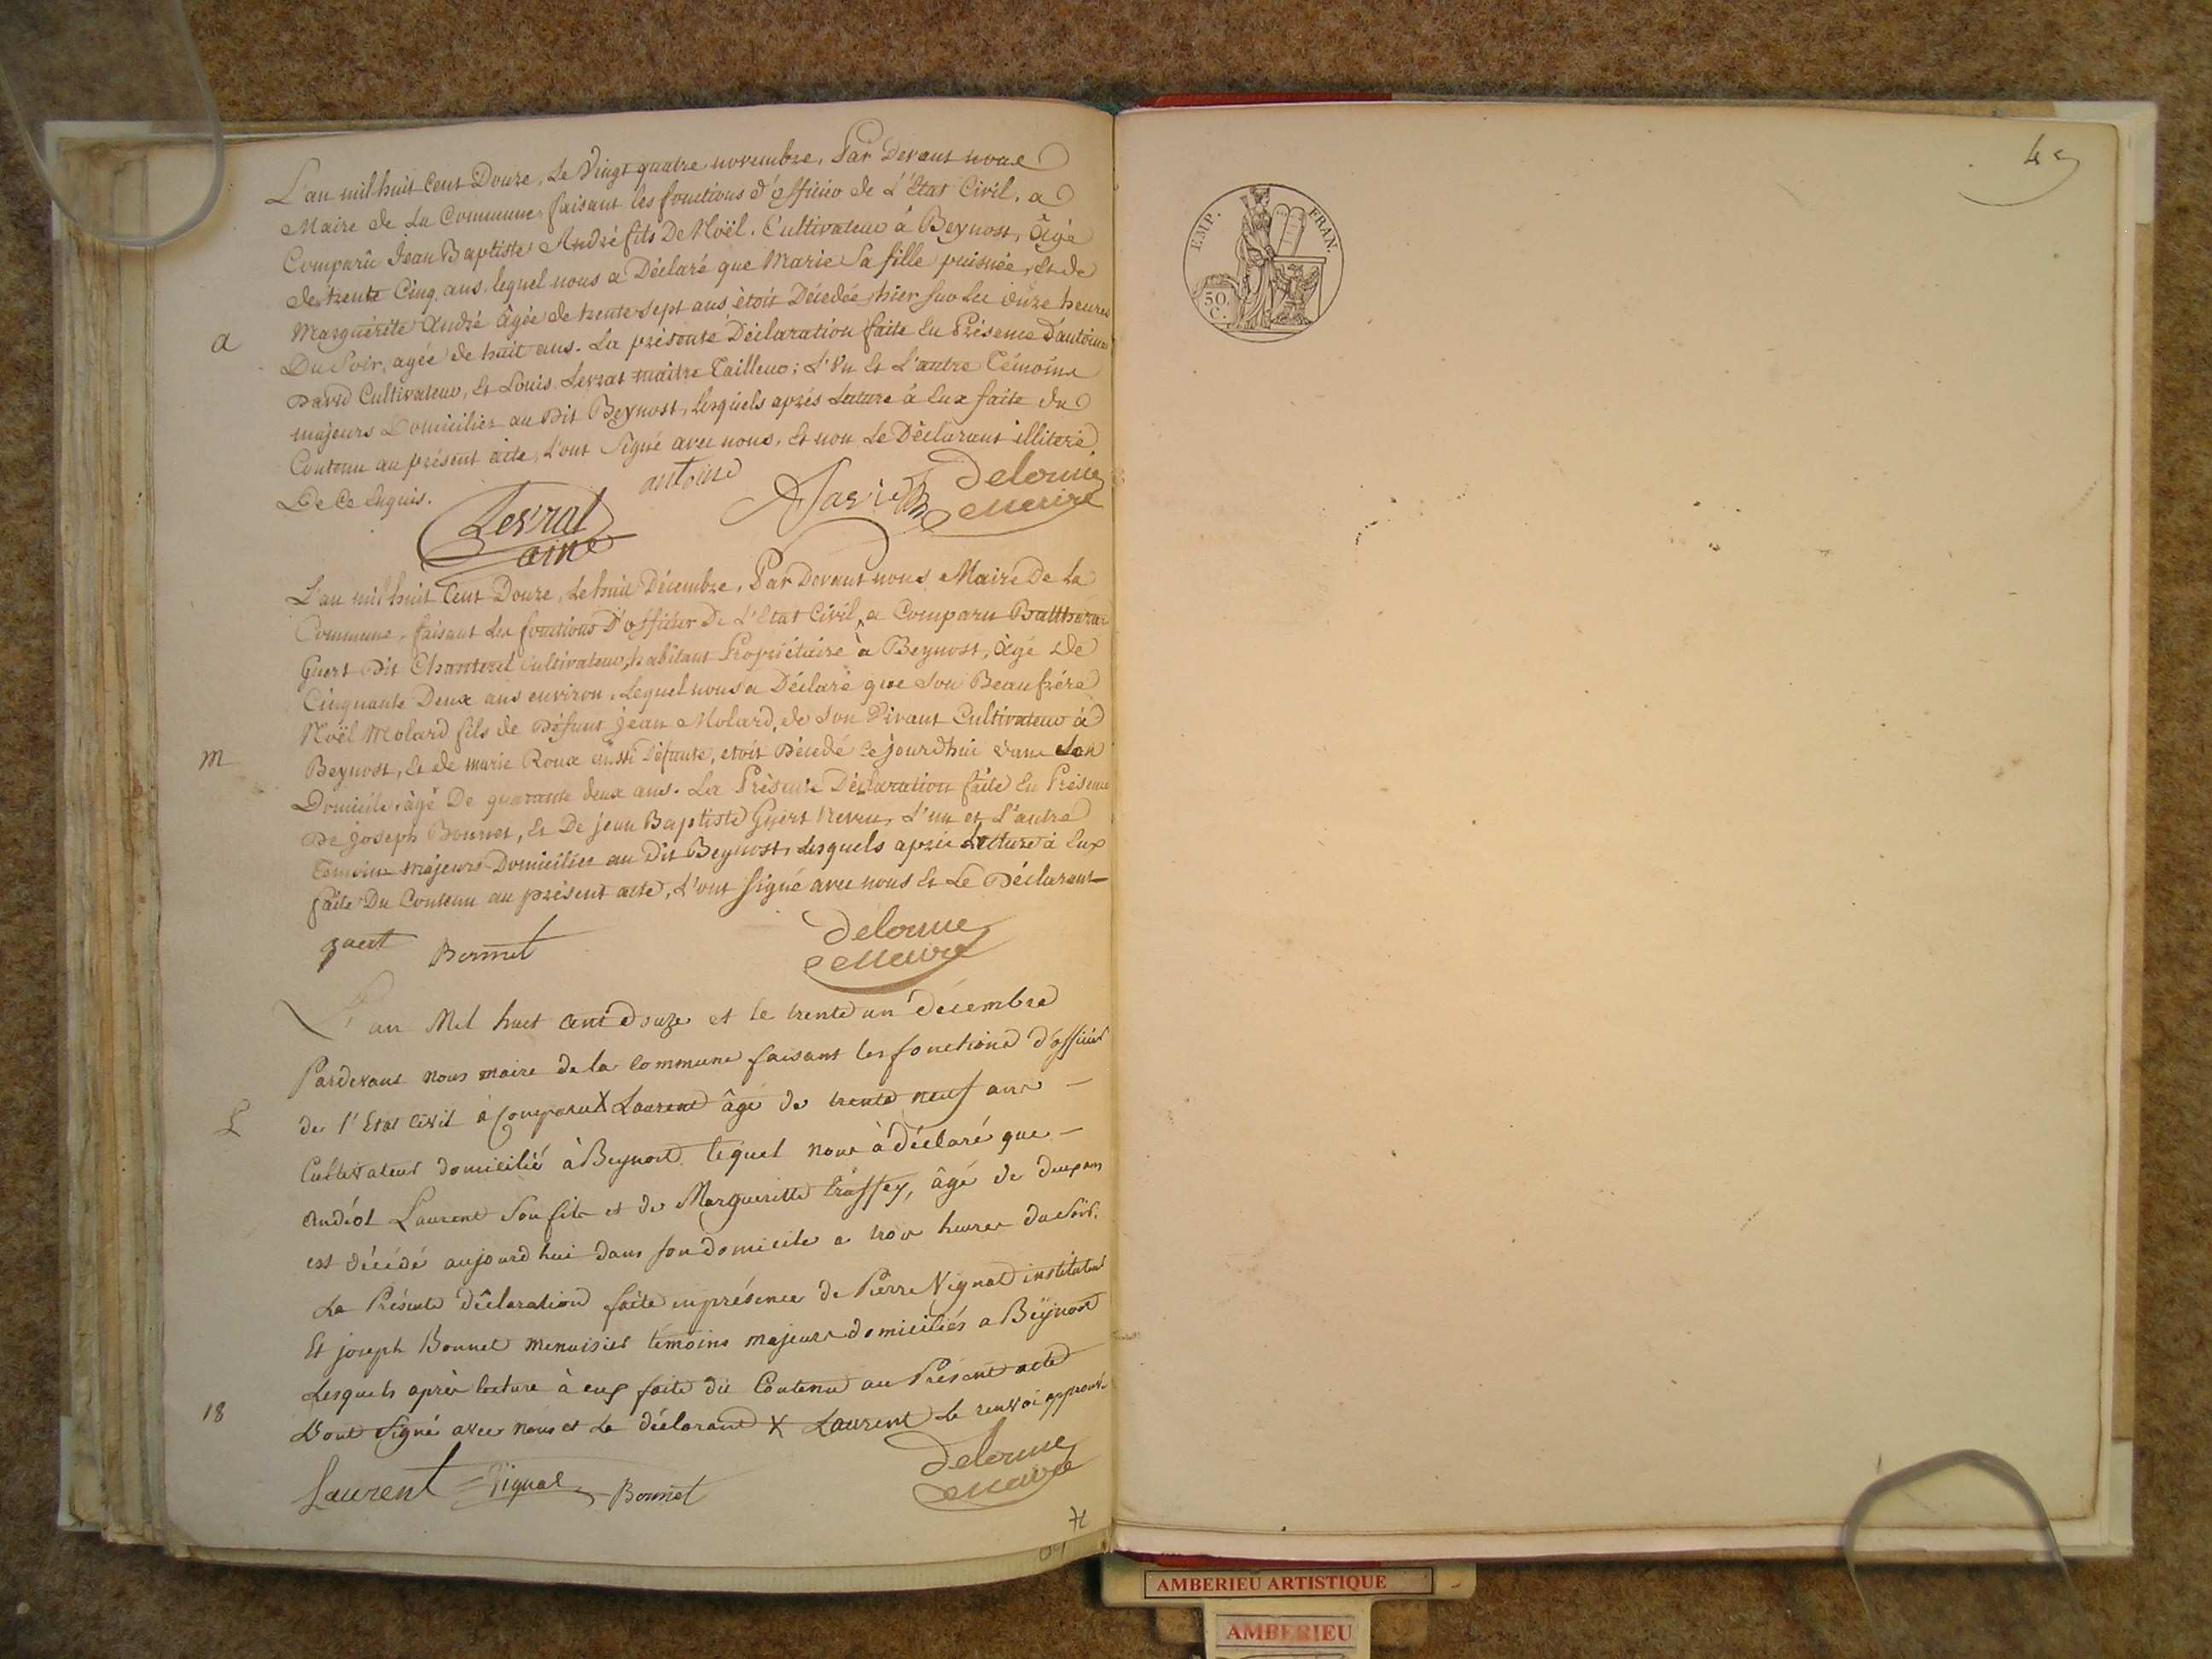 L'an mil huit Cent Douze, Le Vingt quatre novembre, Par Devant nous
Maire de La Commune faisant les fonctions d'officier de L'Etat Civil, a
Comparû Jean Baptiste André fils De Noël, Cultivateur à Beynost, âgé
de trente Cinq ans, lequel nous a Déclaré que Marie Sa fille puisnée, Et de
Marguérite André âgée de trente sept ans étoit Décédée hier sur les onze heures
Du Soir, agée de huit ans. La présente Déclaration faite En Présence d'antoine
David Cultivateur, Et Louis Levrat maitre Tailleur; L'Un Et L'autre Témoins
majeurs Domiciliés au Dit Beynost, Lesquels après Lecture à Eux faite du
Contenu au présent acte, L'ont Signé avec nous, Et non Le Déclarant illiteré
De Ce Enquis.
a
antoine
David
Delorme
Maire
Levrat
ainé
L'an mil huit Cent Douze, Le huit Décembre, Par Devant nous Maire De La
Commune, faisant Les fonctions D'officier De L'Etat Civil, a Comparu
Guert Dit Chanterel Cultivateur, habitant Propriétaire à Beynost, âgé de
Cinquante Deux ans environ, Lequel nous a Déclaré que Son Beaufrére
Noël Molard fils de Défunt jean Molard, de Son Vivant Cultivateur à
Beynost, Et de marie Roux aussi Défunte, etoit Décedé Ce jourdhui dans Son
m
Domicile, âgé De quarante deux ans. La Présente Déclaration faite En Présence
De joseph Bonnet, Et De jean Baptiste Guert Neveu, L'un et L'autre
Temoins majeurs Domiciliés au Dit Beynost, Lesquels aprés Lecture à Eux
faite Du Contenu au présent acte, L'ont Signé avec nous Et Le Déclarant
guert Bonnet
Delorme
Maire
L'an Mil huit Cent douze et le trente un décembre
Pardevant nous maire de la Commune faisant les fonctions d'officier
de l'Etat Civil à Comparu X Laurent âgé de trente neuf ans
L
Cultivateur domicilié à Beynost lequel nous à déclaré que
Andéol Laurent Son fils et de Margueritte Trassey, âgé de deux ans
est décédé aujourd'hui dans son domicile a trois heures du Soir.
La Présente déclaration faite en présence de Pierre Vignat instituteur
Et joseph Bonnet menuisier témoins majeurs domiciliés a Beÿnost
Lesquels après lecture à eux faite du Contenu au Présent acte
18
L'ont Signé avec nous et Le déclarant X Laurent Le renvoi approuvé
Laurent Vignat Bonnet
Delorme
Maire
EMP. FRAN.
50.
C.
AMBERIEU ARTISTIQUE
AMBERIEU